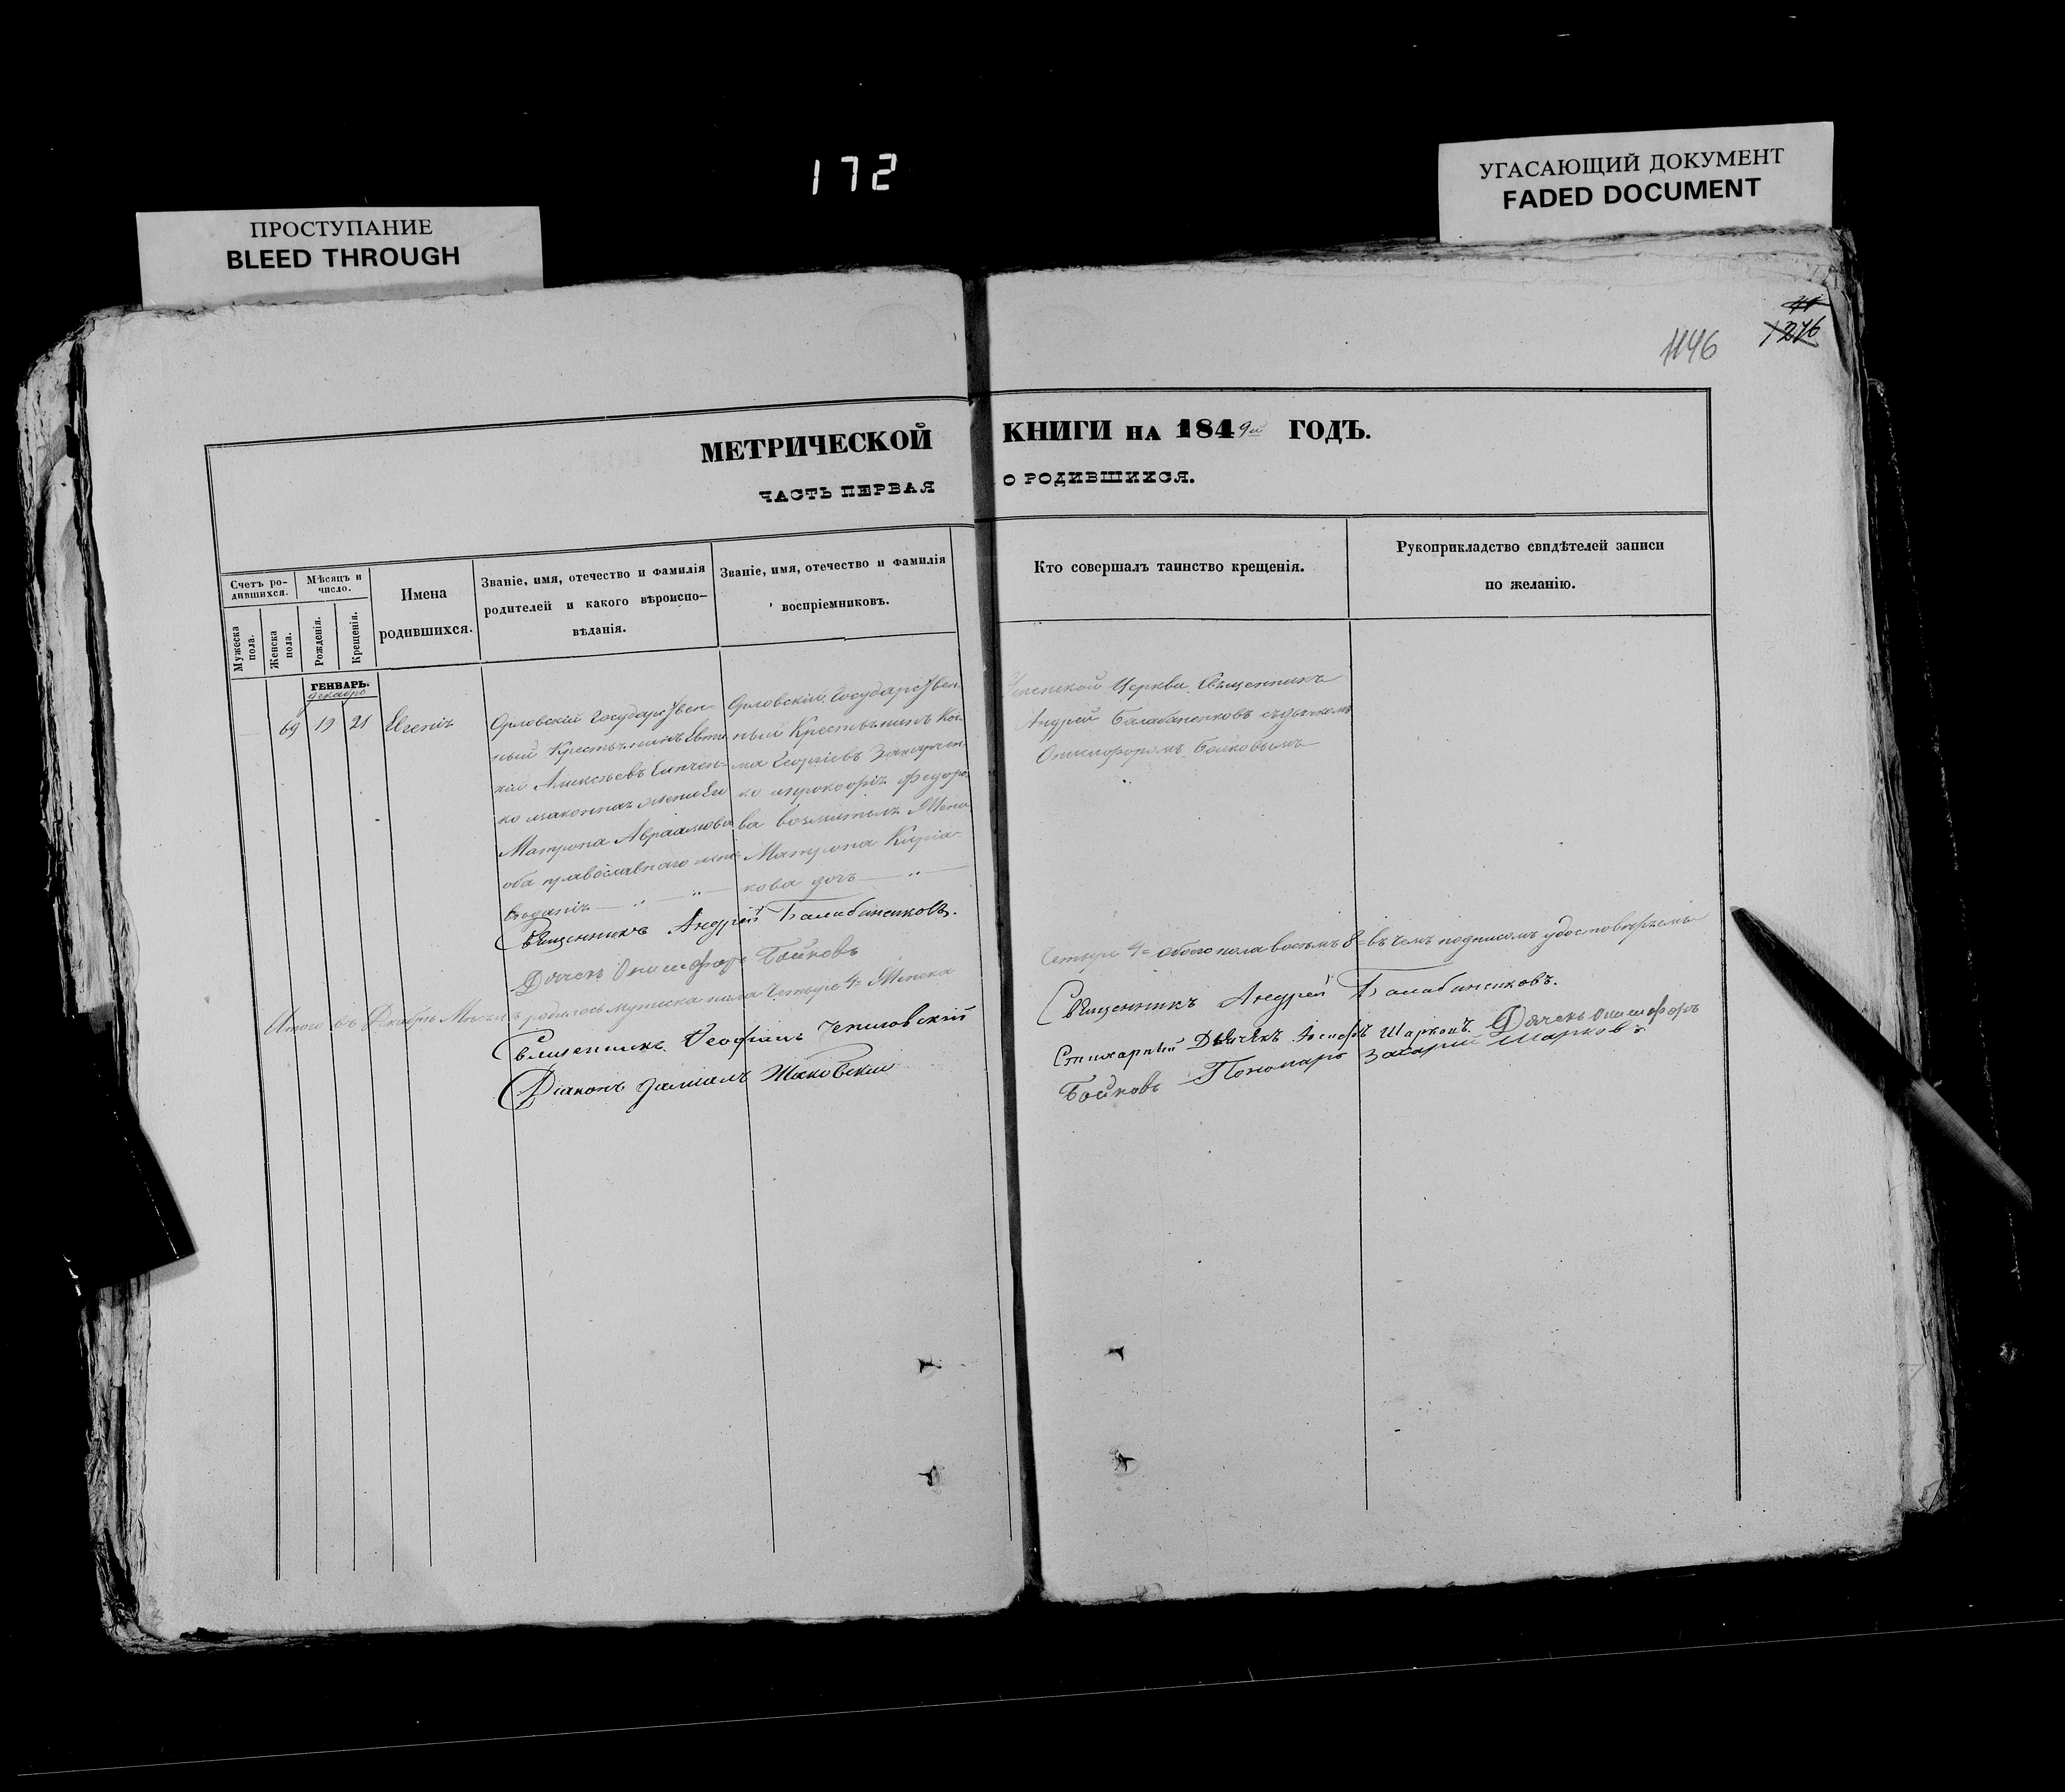 172
ПРОСТУПАНИЕ
BLEED THROUGH
УГАСАЮЩИЙ ДОКУМЕНТ
FADED DOCUMENT
1146
МЕТРИЧЕСКОЙ КНИГИ НА 1849й ГОДЪ.
ЧАСТЬ ПЕРВАЯ О РОДИВШИХСЯ.
Счетъ ро-
дившихся.
Мѣсяцъ и
число.
Мужеска
пола.
Женска
пола.
Рожденія.
Крещенія.
Имена
родившихся.
Званіе, имя, отечество и фамилія
родителей и какого вѣроиспо-
вѣданія.
Званіе, имя, отечество и фамилія
воспріемниковъ.
Кто совершалъ таинство крещенія.
Рукоприкладство свидѣтелей записи
по желанію.
ГЕНВАРЬ.
декабрь
69 19 21
Орловскій Государствен-
ный Крестьянинъ
Алексѣевъ
законная жена Ея
Матрона Авраамова
оба православнаго испо-
вѣданія
Орловскій Государствен-
ный Крестьянинъ Кос-
ма Георгіевъ Захарчен-
ко Федоро-
ва Жена
Матрона Киріа-
кова дочь
Церкви Священникъ
Андрей Балабаненковъ съ дьячкомъ
Онисифоромъ Бойковымъ
Священникъ Андрей Балабаненковъ.
Дячекъ Онисифоръ Бойковъ
Итого въ Декабрѣ Мѣсяцѣ родилось мужеска пола Четыре 4= Женска
Четыре 4= обоего пола восемь 8= въ чемъ подписомъ удостовѣряемъ
Священникъ Феофанъ Чепиловскій
Діаконъ Жаковскій
Священникъ Андрей Балабаненковъ.
Стихарный Дьячекъ Іосифъ Шарковъ. Дячекъ Онисифоръ
Бойковъ Пономарь Захарій